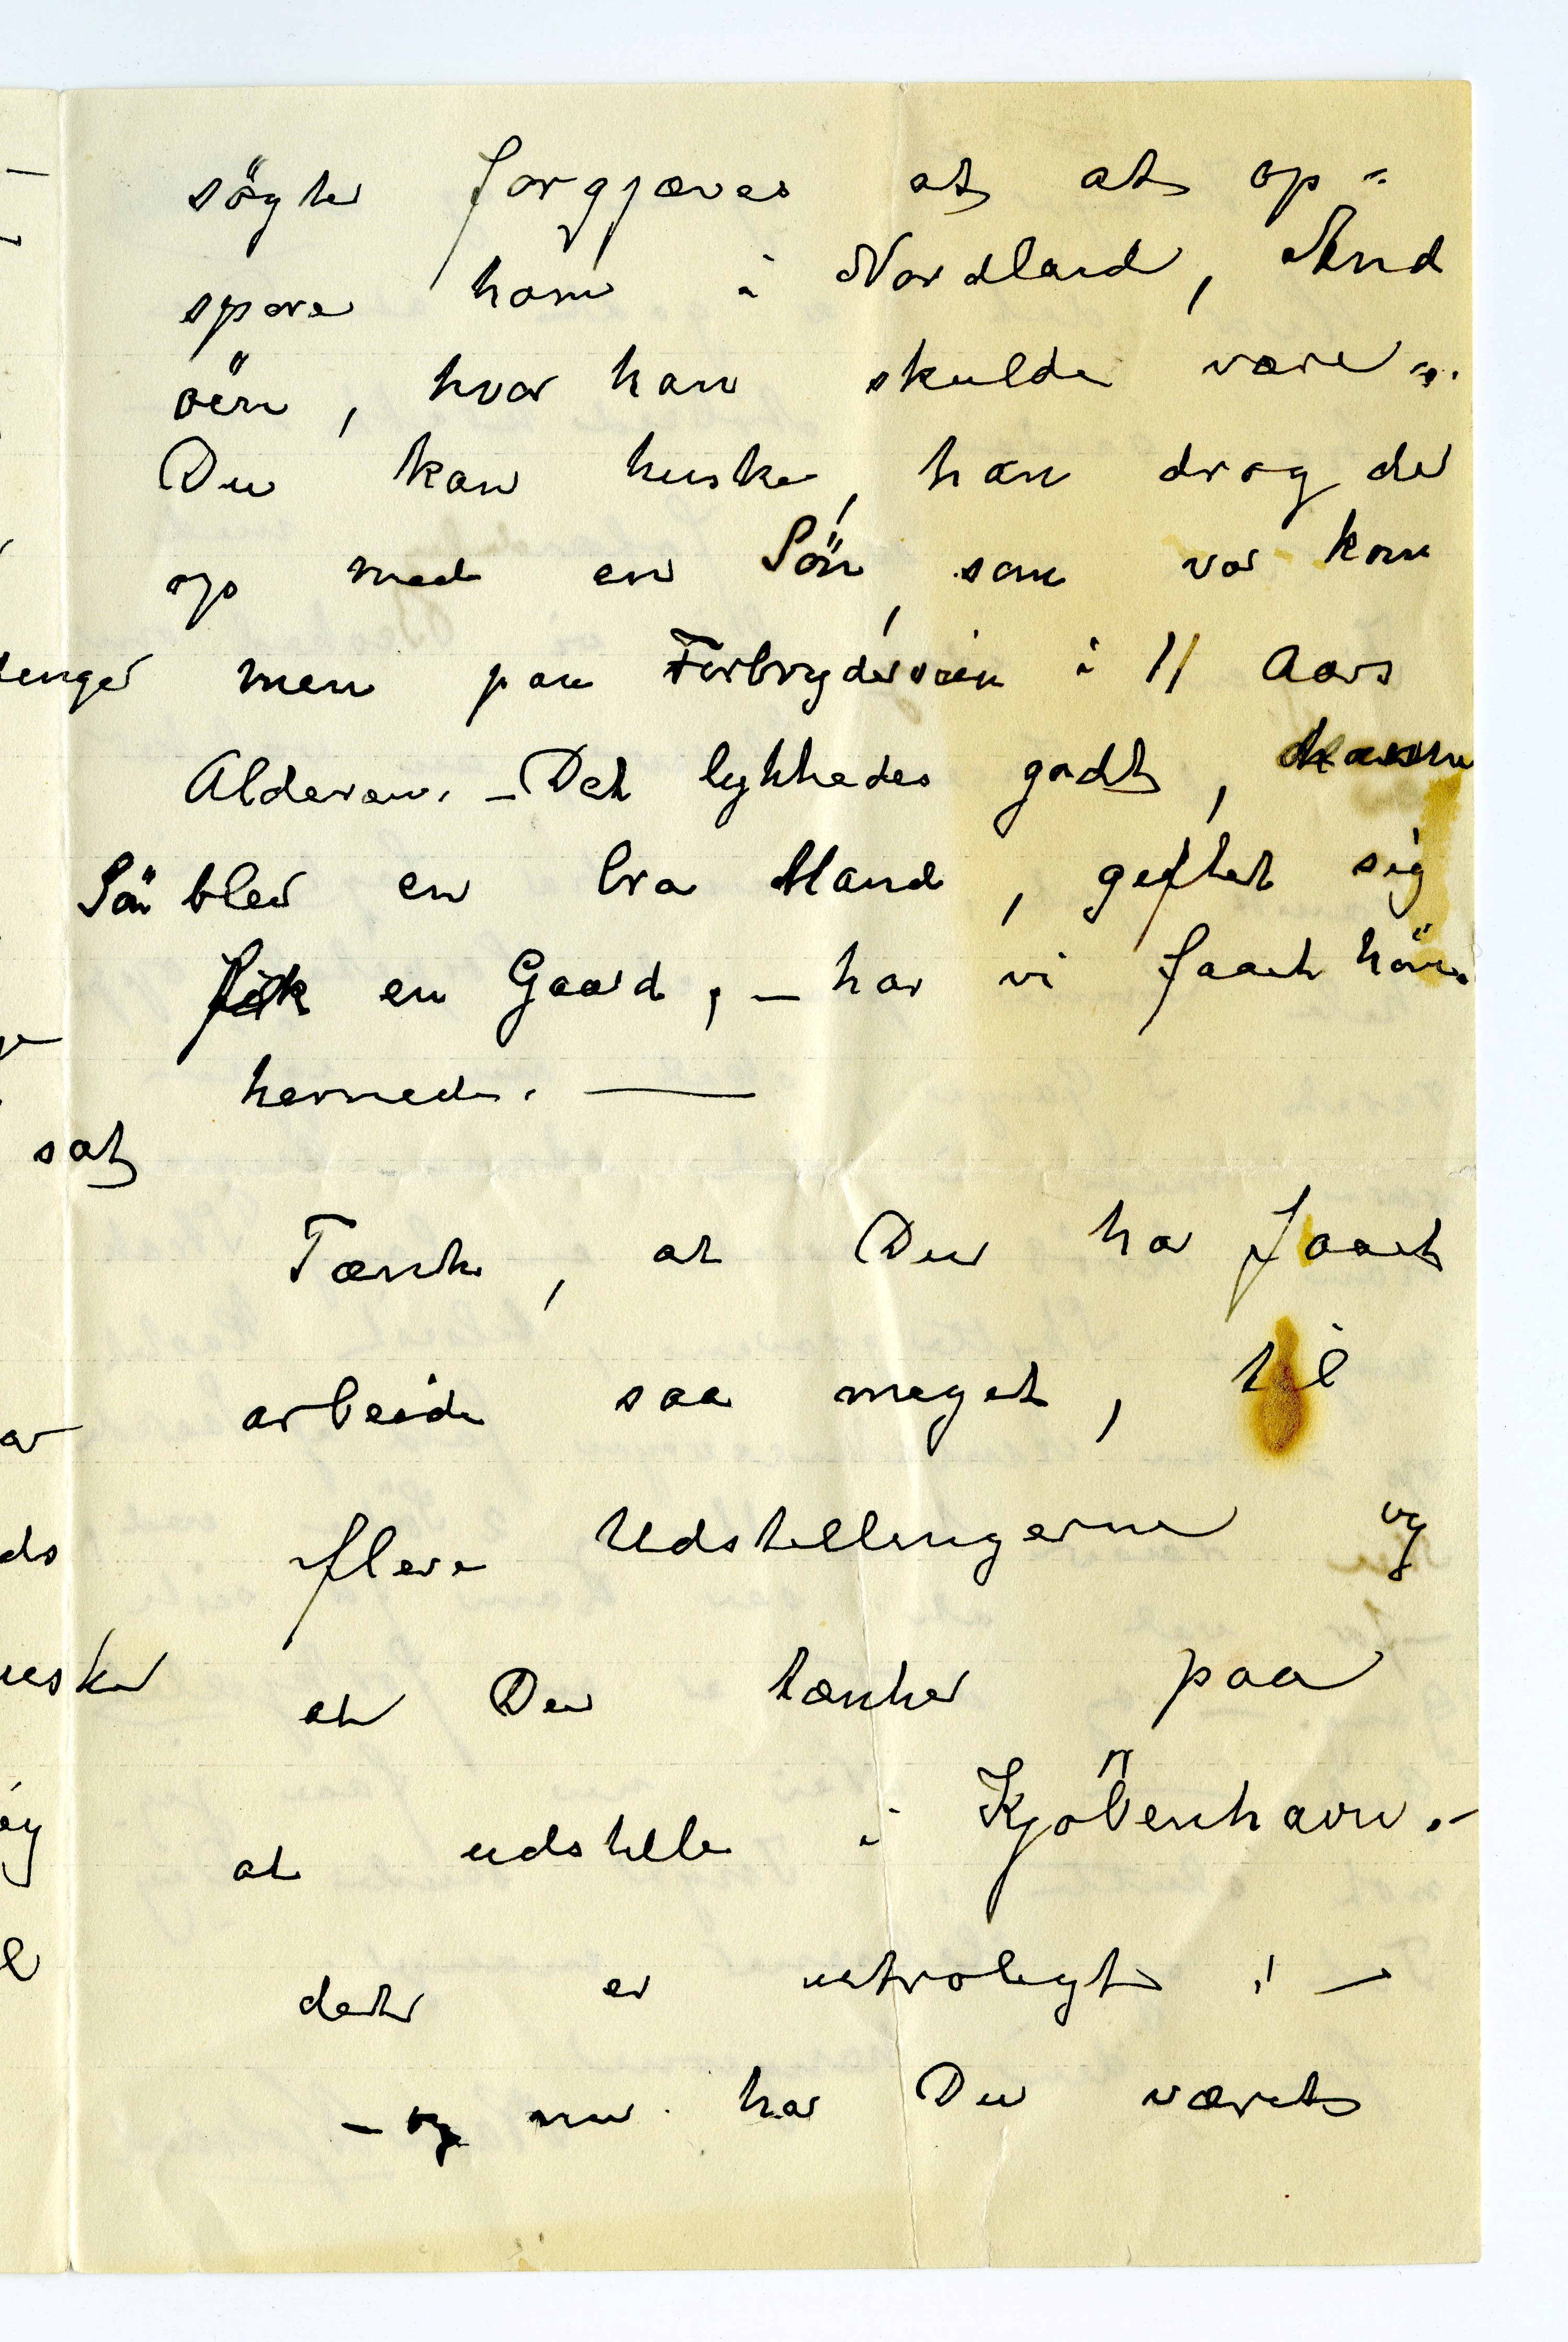 søgte forgjæves at at op-
spore ham i Nordland, And
øen, hvor han skulde være.
Du kan huske, han drog der
op med en Søn, som var kom
men paa Forbryderveien i 11 Aars
Alderen. – Det lykkedes godt,
Søn blev en bra Mand, giftet sig
fik en Gaard, – har vi faaet høre
hernede. —
Tænk, at Du har faaet
arbeide saa meget, til
flere Udstillingerne og
at Du tænker paa
at udstille i Kjøbenhavn. –
det er utroligt! –
– og nu har Du været
sat